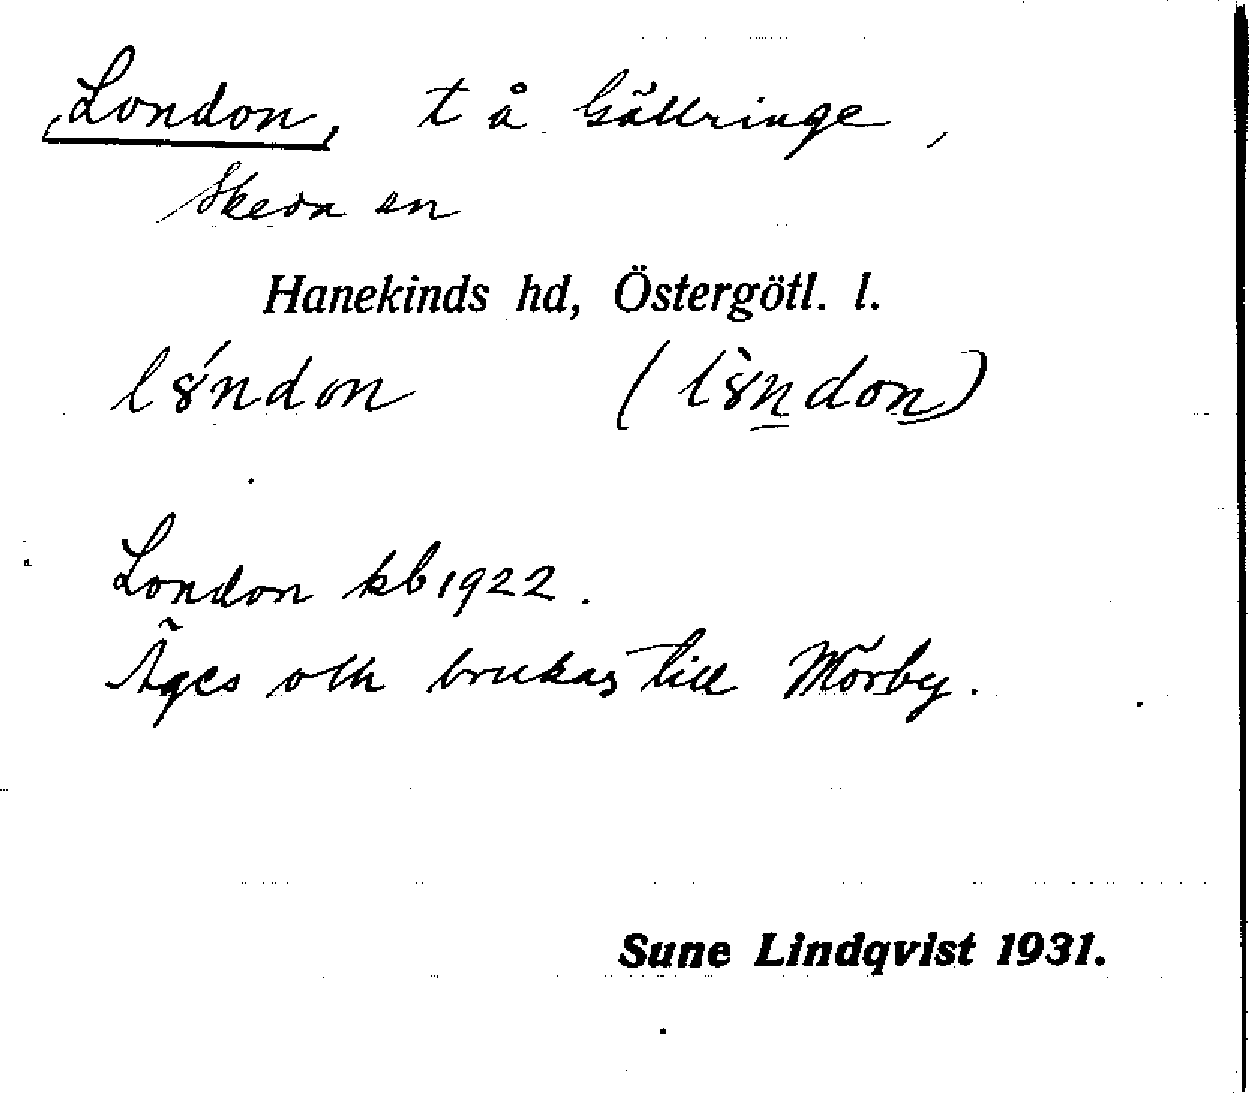 London, t å Gällringe,
Skeda sn
Hanekinds hd, Östergötl. l.
l8́ndon (l8̀ndon)
London kb 1922.
Äges och brukas till Mörby.
Sune Lindqvist 1931.